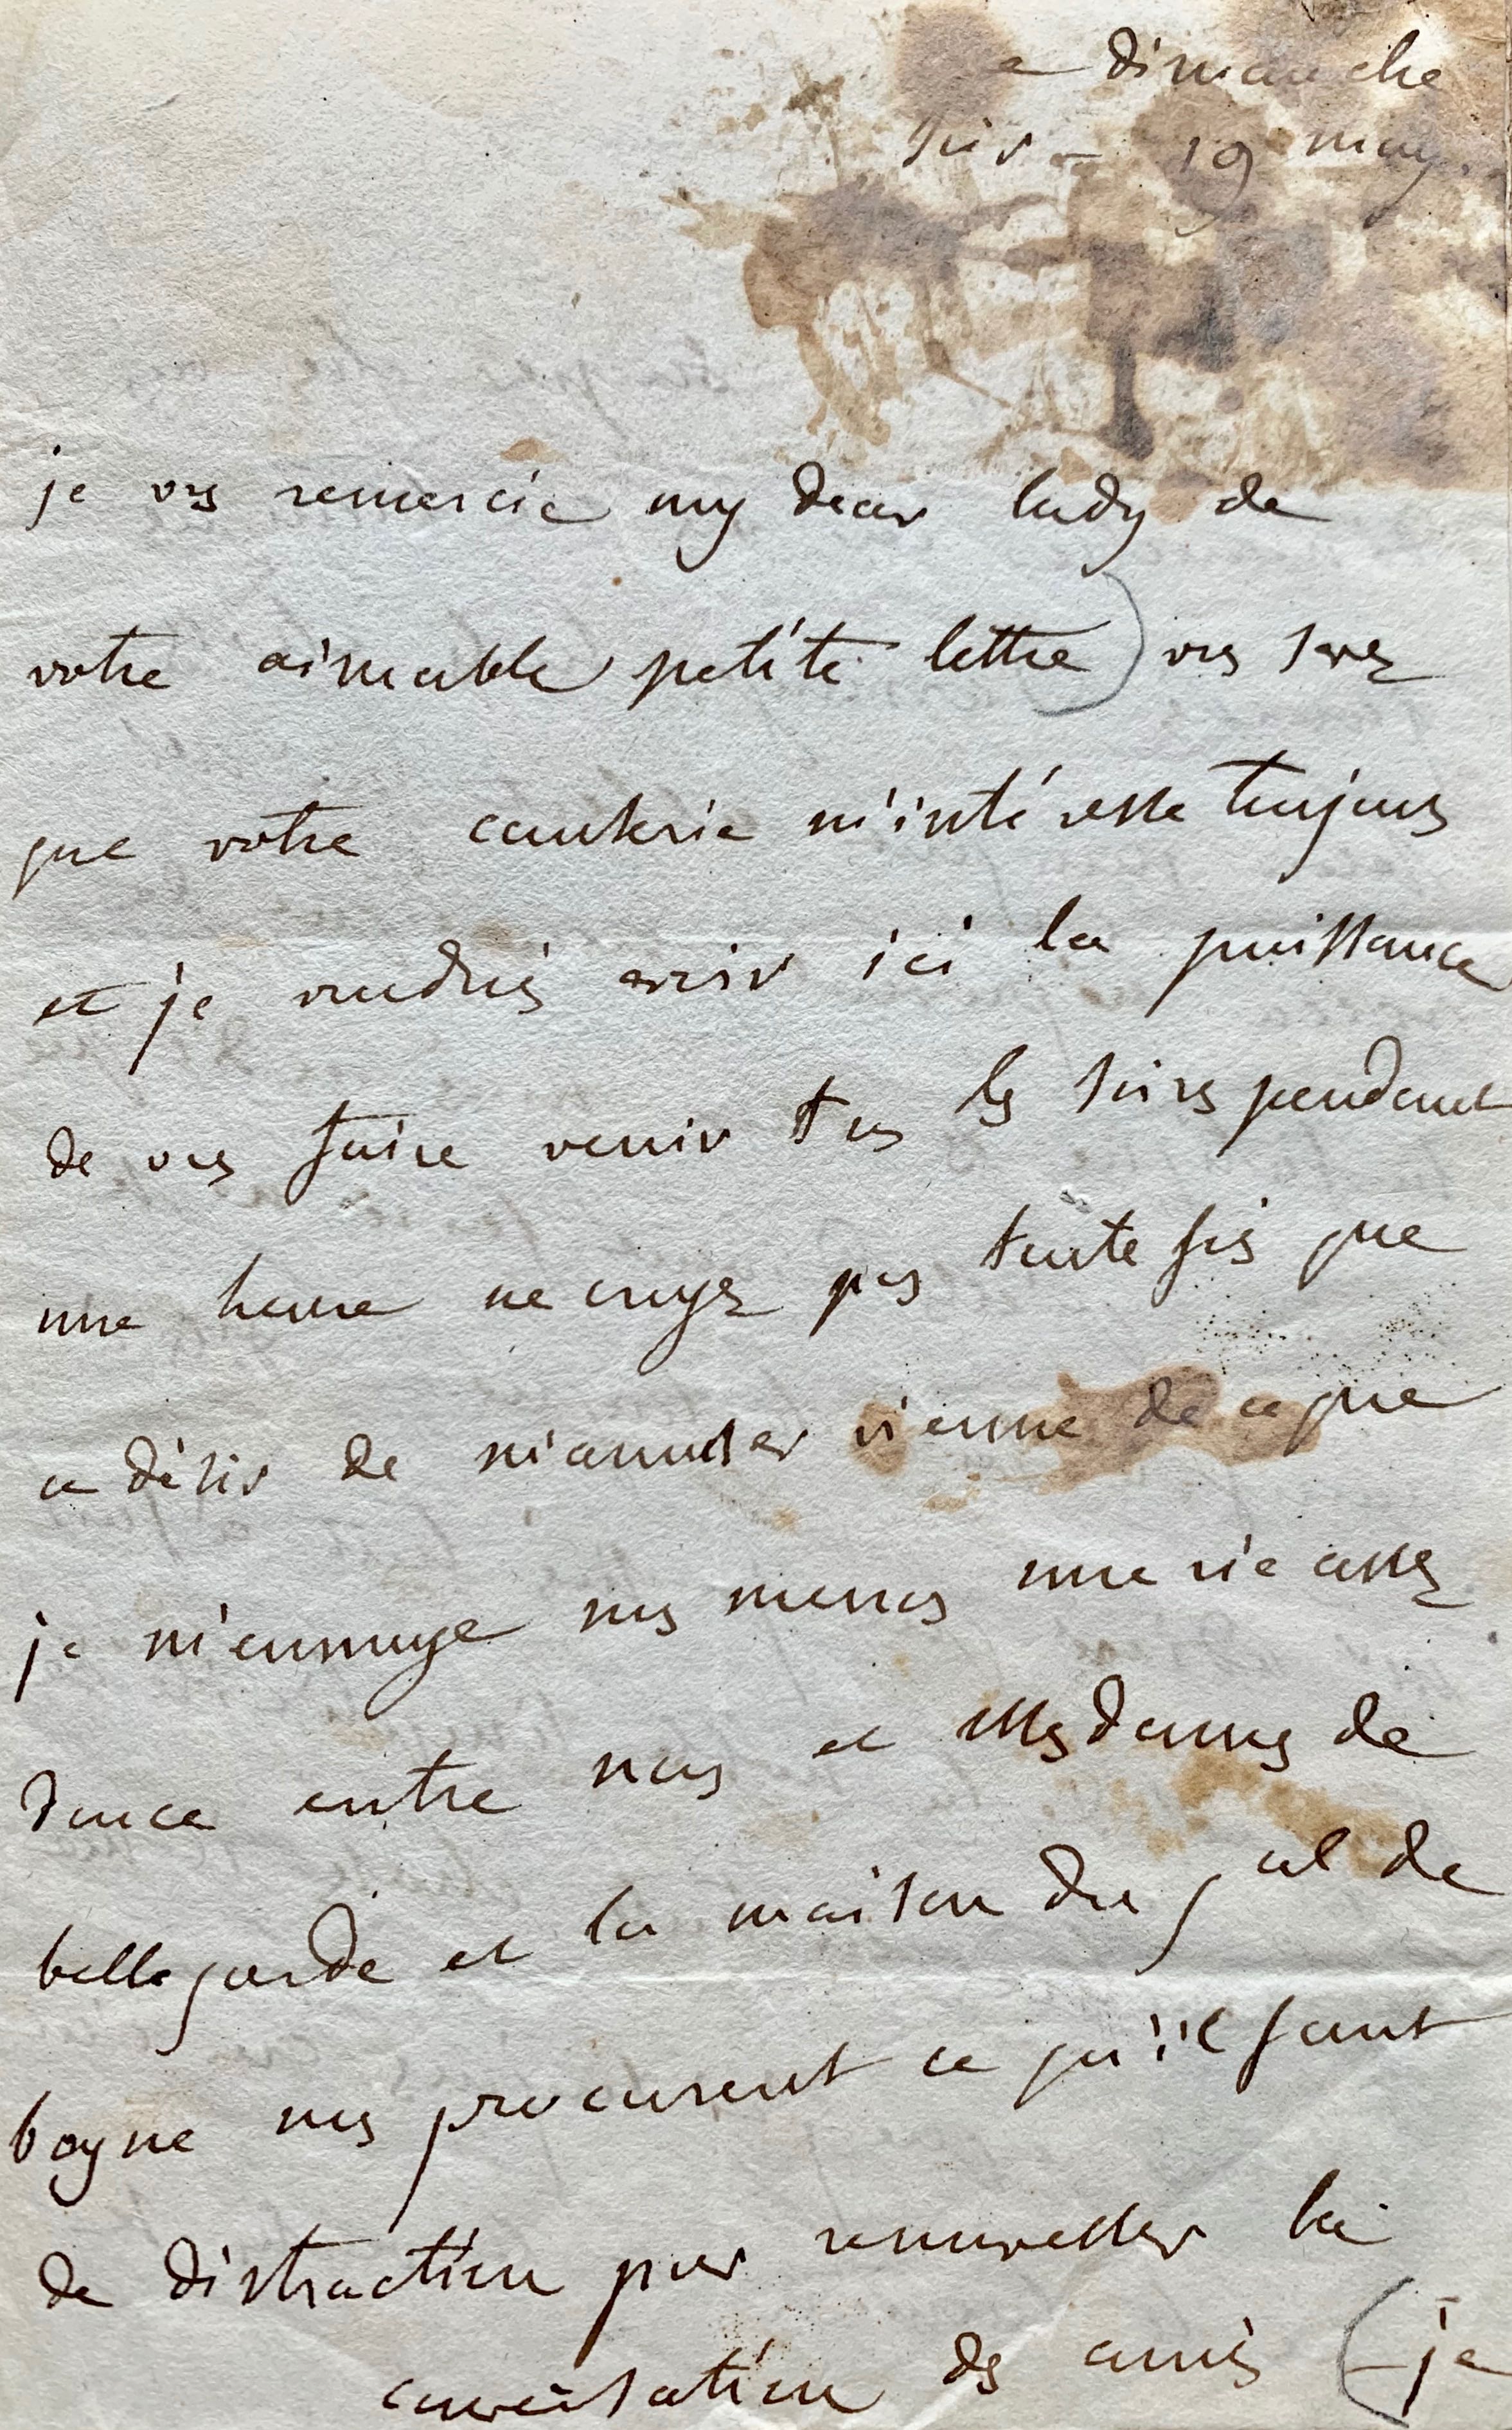 ce dimanche
soir - 19 may.
je vs remercie my dear lady de
votre aimable petite lettre) vs savez
que votre causerie m'intéresse toujours
et je voudrois avoir ici la puissance
de vs faire venir ts les soirs pendant
une heure ne croyez pas toute fois que
ce désir de m'amuser vienne de ce que
je m'ennuye ns menons une vie assez
douce entre nous et Mesdames de
bellegarde et la maison du gal de
boyne ns procurent ce qu'il faut
de distraction pour renouveller la
conversation des amis (- je